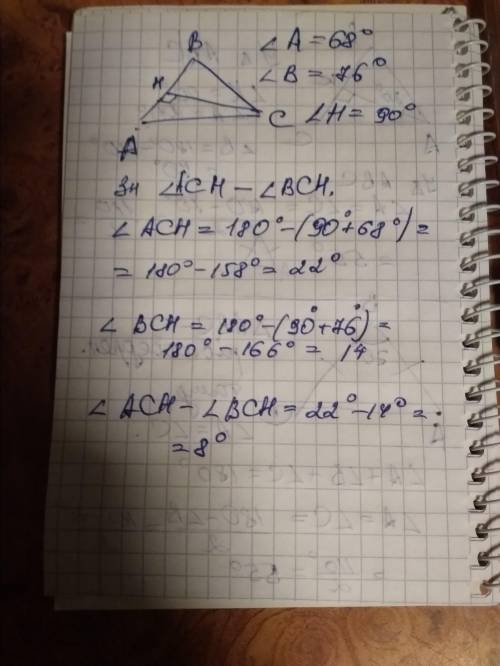 B
∠A = 68°
H
∠B = 76°
C
∠H = 90°
A
Зн ∠ACH – ∠BCH.
∠ ACH = 180° – (90°+68°) =
= 180° – 158° = 22°
∠ BCH = 180° – (90°+76°) =
180° – 166° = 14
∠ ACH – ∠BCH = 22° – 14° =
= 8°